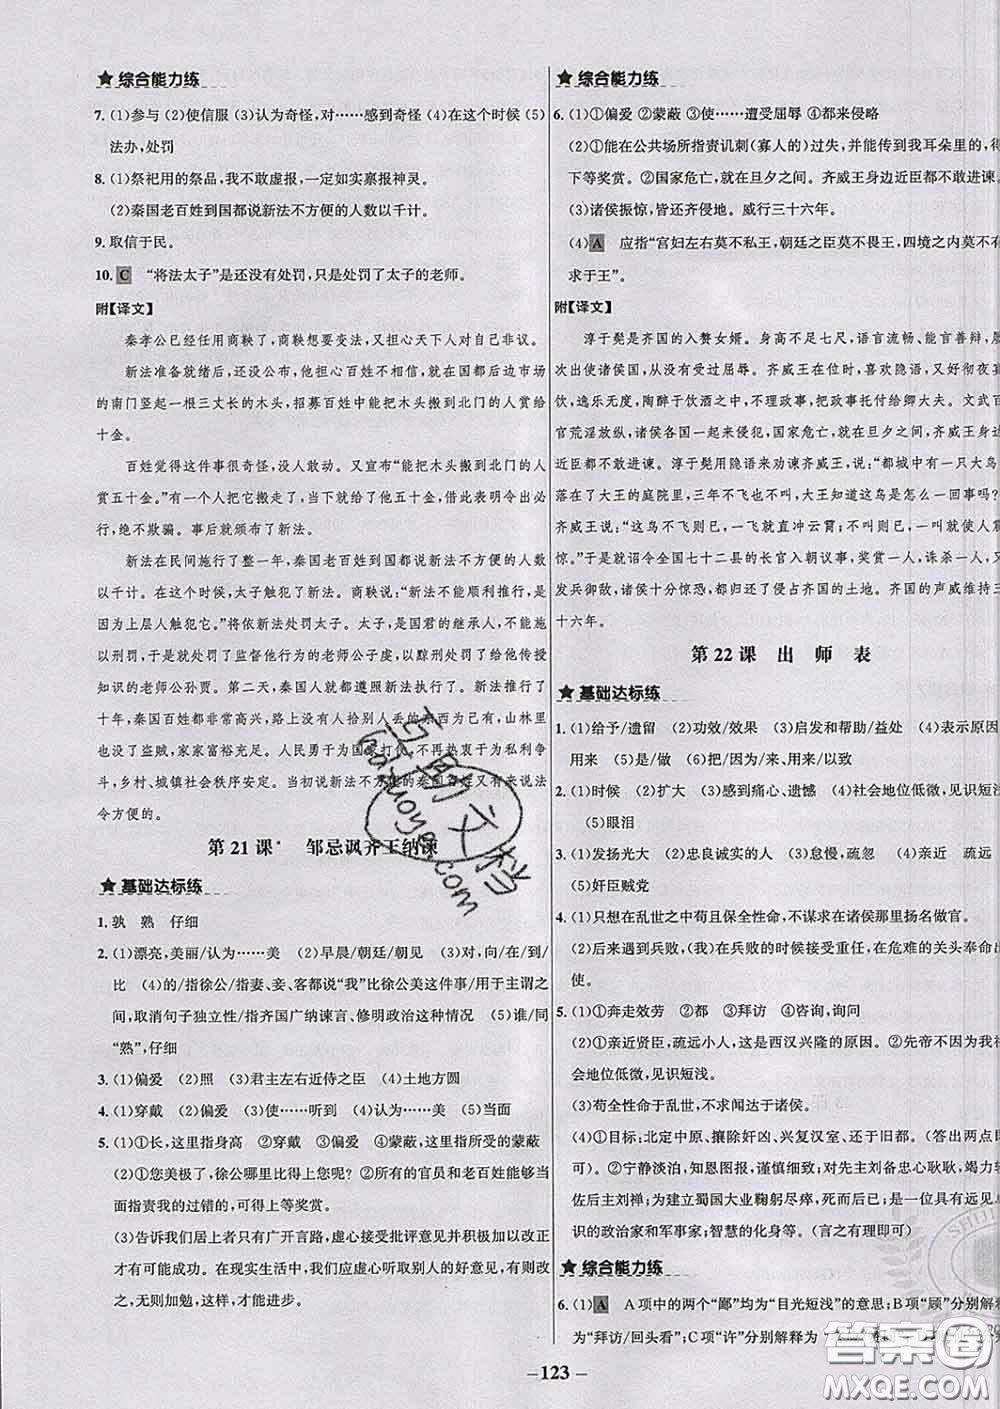 ★ 综合能力练
7. (1)参与 (2)使信服 (3)认为奇怪,对……感到奇怪 (4)在这个时候 (5)
法办,处罚
8. (1)祭祀用的祭品,我不敢虚报,一定如实禀报神灵。
(2)秦国老百姓到国都说新法不方便的人数以千计。
9. 取信于民。
10. C “将法太子”是还没有处罚,只是处罚了太子的老师。
附【译文】
秦孝公已经任用商鞅了,商鞅想要变法,又担心天下人对自己非议。
新法准备就绪后,还没公布,他担心百姓不相信,就在国都后边市场
的南门竖起一根三丈长的木头,招募百姓中能把木头搬到北门的人赏给
十金。
百姓觉得这件事很奇怪,没人敢动。又宣布“能把木头搬到北门的人
赏五十金。”有一个人把它搬走了,就给了他五十金,借此表明令出必
行,绝不欺骗。事后就颁布了新法。
新法在民间施行了整一年,秦国老百姓到国都说新法不方便的人数
以千计。在这个时候,太子触犯了新法。商鞅说:“新法不能顺利推行,是
因为上层人触犯它。”将依新法处罚太子。太子,是国君的继承人,不能施
以刑罚,于是就处罚了监督他行为的老师公子虔,以黥刑处罚了给他传授
知识的老师公孙贾。第二天,秦国人就都遵照新法执行了。新法推行了
十年,秦国百姓都非常高兴,路上没有人拾别人丢的东西为己有,山林里
也没了盗贼,家家富裕充足。人民勇于为国家打仗,不敢为私利争
斗,乡村、城镇社会秩序安定。当初说新法不方便的秦国百姓又有来说法
令方便的。
第21课* 邹忌讽齐王纳谏
★ 基础达标练
1. 孰 熟 仔细
2. (1)漂亮,美丽/认为……美 (2)早晨/朝廷/朝见 (3)对,向/在/到/
比 (4)的/指徐公/指妻、妾、客都说“我”比徐公美这件事/用于主谓之
间,取消句子独立性/指齐国广纳谏言、修明政治这种情况 (5)谁/同
“熟”,仔细
3. (1)偏爱 (2)照 (3)君主左右近侍之臣 (4)土地方圆
4. (1)穿戴 (2)偏爱 (3)使……听到 (4)认为……美 (5)当面
5. (1)①长,这里指身高 ②穿戴 ③偏爱 ④蒙蔽,这里指所受的蒙蔽
(2)①您美极了,徐公哪里比得上您呢? ②所有的官员和老百姓能够当
面指责我的过错的,可得上等奖赏。
(3)告诉我们居上者只有广开言路,虚心接受批评意见并积极加以改正
才有可能成功。在现实生活中,我们应虚心听取别人的好意见,有则改
之,无则加勉,这样,才能进步。
★ 综合能力练
6. (1)①偏爱 ②蒙蔽 ③使……遭受屈辱 ④都来侵略
(2)①能在公共场所指责讥刺(寡人的)过失,并能传到我耳朵里的,得
下等奖赏。②国家危亡,就在旦夕之间。齐威王身边近臣都不敢进谏。
(3)诸侯振惊,皆还齐侵地。威行三十六年。
(4) A 应指“宫妇左右莫不私王,朝廷之臣莫不畏王,四境之内莫不有
求于王”。
附【译文】
淳于髡是齐国的入赘女婿。身高不足七尺,语言流畅、能言善辩,屡
次出使诸侯国,从没有受过屈辱。齐威王在位时,喜欢隐语,彻夜宴
饮,逸乐无度,陶醉于饮酒之中,不理政事,把政事托付给卿大夫。文武百
官荒淫放纵,诸侯各国一起来侵犯,国家危亡,就在旦夕之间。齐王身边
近臣都不敢进谏。淳于髡用隐语来劝谏齐威王,说:“都城中有一只大鸟,
落在了大王的庭院里,三年不飞也不叫,大王知道这鸟是怎么一回事吗?”
齐威王说:“这鸟不飞则已,一飞就直冲云霄;不叫则已,一叫就使人震
惊。”于是就诏令全国七十二县的长官入朝议事,奖赏一人,诛杀一人,又
发兵御敌,诸侯十分惊恐,都归还了侵占齐国的土地。齐国的声威维持三
十六年。
第22课 出师表
★ 基础达标练
1. (1)给予/遗留 (2)功效/效果 (3)启发和帮助/益处 (4)表示原因/
用来 (5)是/做 (6)把/因为/来
2. (1)时候 (2)扩大 (3)感到痛心、遗憾 (4)社会地位低微,见识短浅
(5)眼泪
3. (1)发扬光大 (2)忠良诚实的人 (3)怠慢,疏忽 (4)亲近 疏远
(5)奸臣贼党
4. (1)只想在乱世之中苟且保全性命,不谋求在诸侯里扬名做官。
(2)后来遇到兵败,(我)在兵败的时候接受重任,在危难的关头奉命出
使。
5. (1)①奔走效劳 ②都 ③拜访 ④咨询,询问
(2)①亲近贤臣,疏远小人,这是西汉兴隆的原因。②先帝不因为我社
会地位低微,见识短浅。
(3)苟全性命于乱世,不求闻达于诸侯。
(4)①目标:北定中原、攘除奸凶、兴复汉室、还于旧都。(答出两点即
可)。②宁静淡泊,知恩图报,谨慎细致;对先主刘备忠心耿耿,竭力辅
佐后主刘禅;为建立蜀国大业鞠躬尽瘁,死而后已;是一位具有远见卓
识的政治家和军事家;智慧的化身等。(言之有理即可)
★ 综合能力练
6. (1) A A项中的两个“鄙”均为“目光短浅”的意思;B项“顾”分别解释
为“拜访/回头看”;C项“许”分别解释为
123
答案圈
MXQE.COM